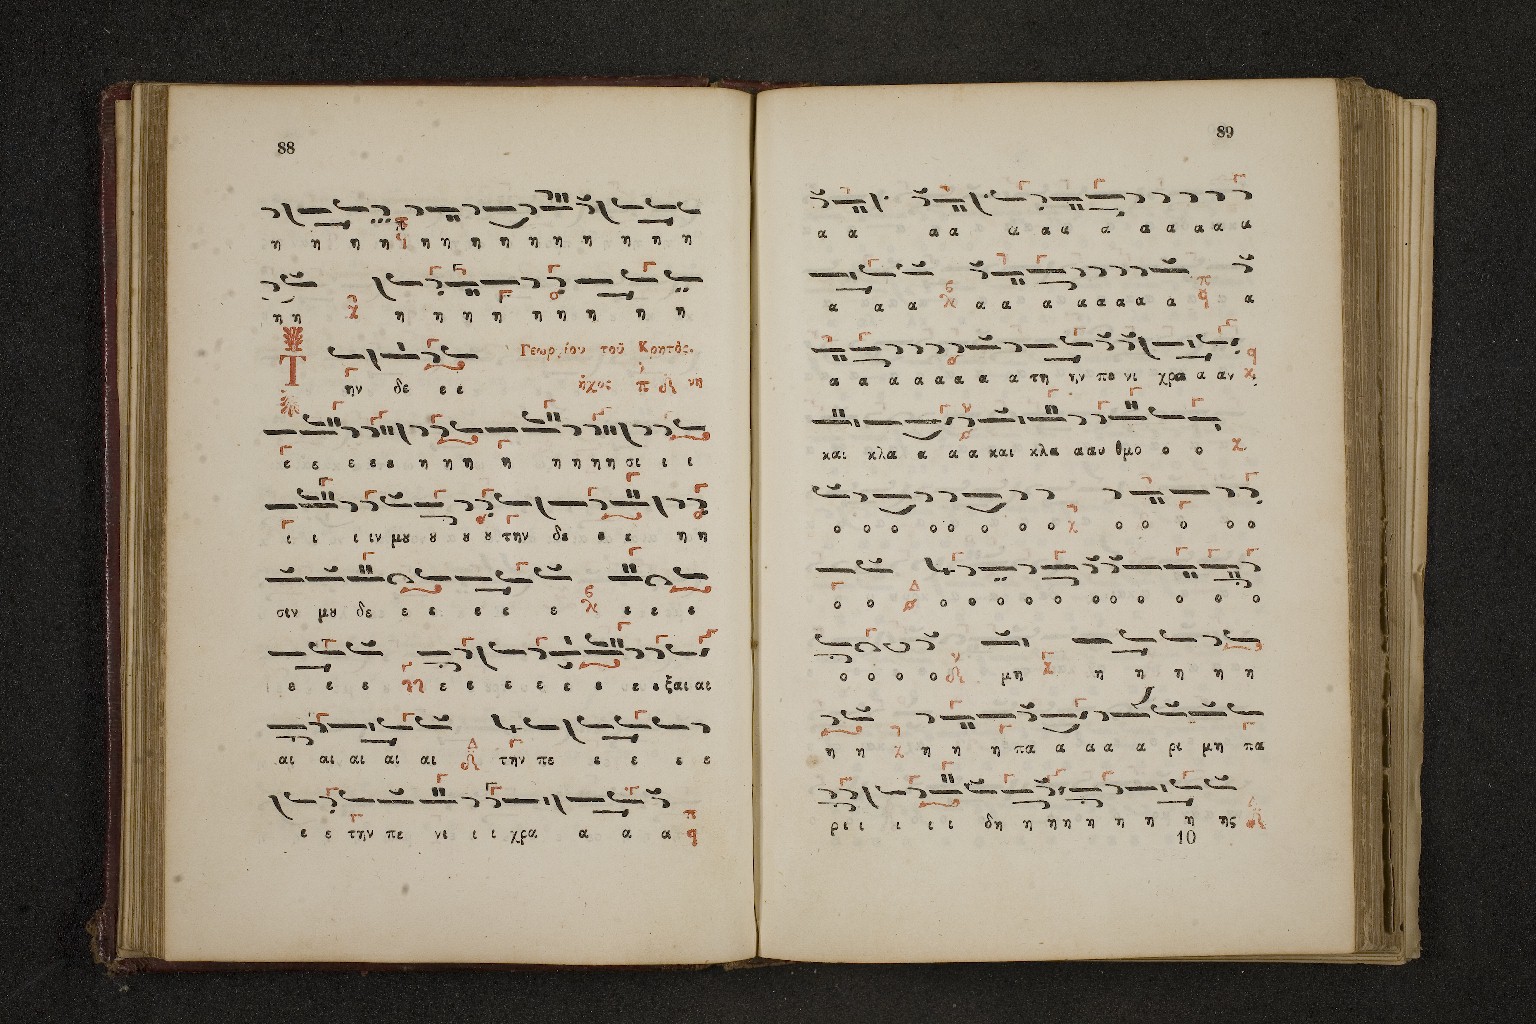 88
η η η η η η η η η η η η η η
η η η η η η η η η
Γεωργίου τοῦ Κρητὸς.
Την δε ε ε ἦχος πλ δι νη
ε ε ε ε ε η η η η η η η η σι ι ι
ι ι ι ιν μου ου ου ου την δε ε ε η η
σιν μου δε ε ε ε ε ε ε ε ε
ε ε ε ε ε ε ε ε ε ε ε ξαι αι
αι αι αι αι αι την πε ε ε ε ε
ε ε την πε νι ι ι χρα α α α
89
α α α α α α α α α α α α α
α α α α α α α α α α α
α α α α α α α α τη ην πε νι χρα α αν
και κλα α α α και κλα α αυ θμο ο ο
ο ο ο ο ο ο ο ο ο ο ο ο ο
ο ο ο ο ο ο ο ο ο ο ο ο ο
ο ο ο ο μη η η η η η
η η η η η πα α α α α ρι μη πα
ρι ι ι ι ι δη η η η η η η η ης
10